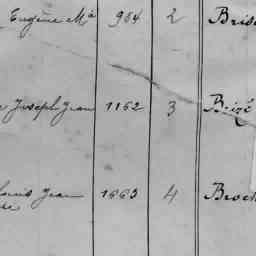 Eugène Ma 964 2 Bris
Joseph Jean 1162 3 Brizé
Louis Jean 1663 4 Broch